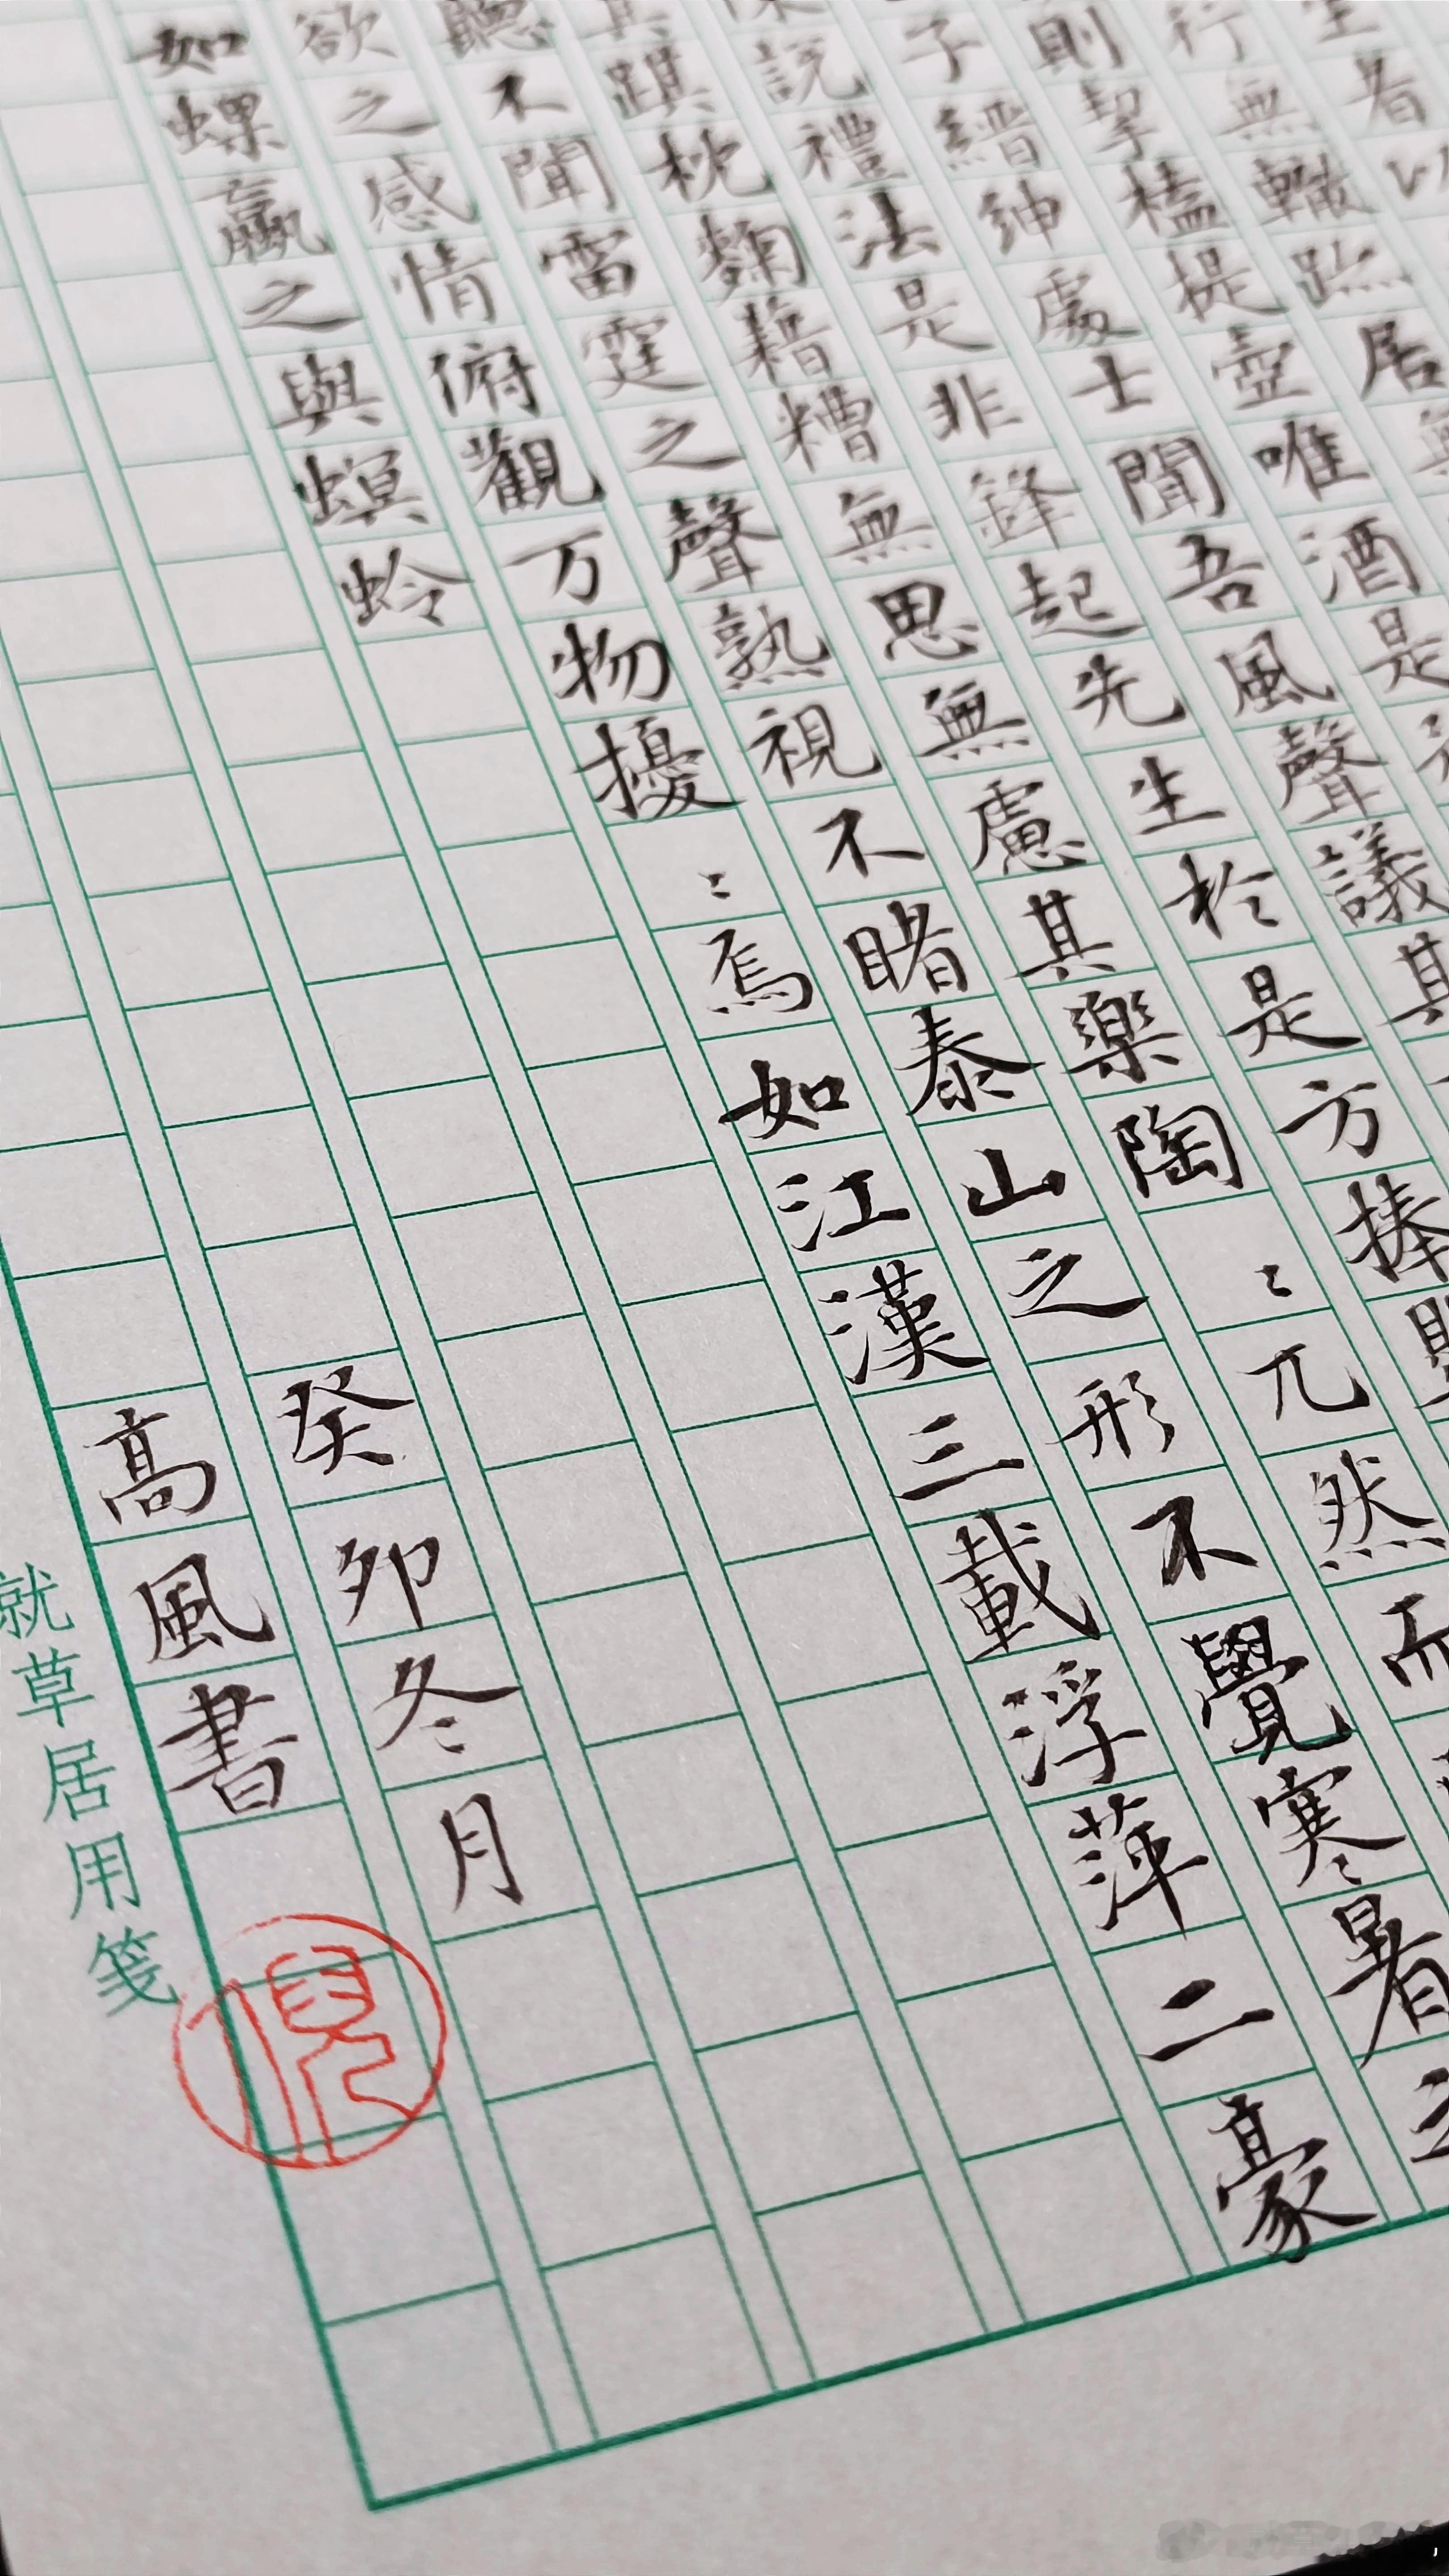 者以
行無轍跡居無
則挈榼提壺唯酒是
子縉紳處士聞吾風聲議其
說禮法是非鋒起先生於是方捧
其踑枕麴藉糟無思無慮其樂陶〻兀然而
聽不聞雷霆之聲熟視不睹泰山之形不覺寒暑之
欲之感情俯觀万物擾〻焉如江漢三載浮萍二豪
如螺蠃之與螟蛉
癸卯冬月
高風書
倪
就草居用箋